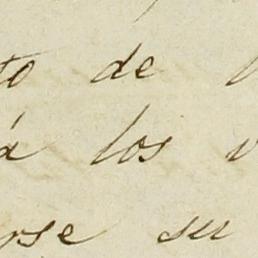 to de
á los v
rse su